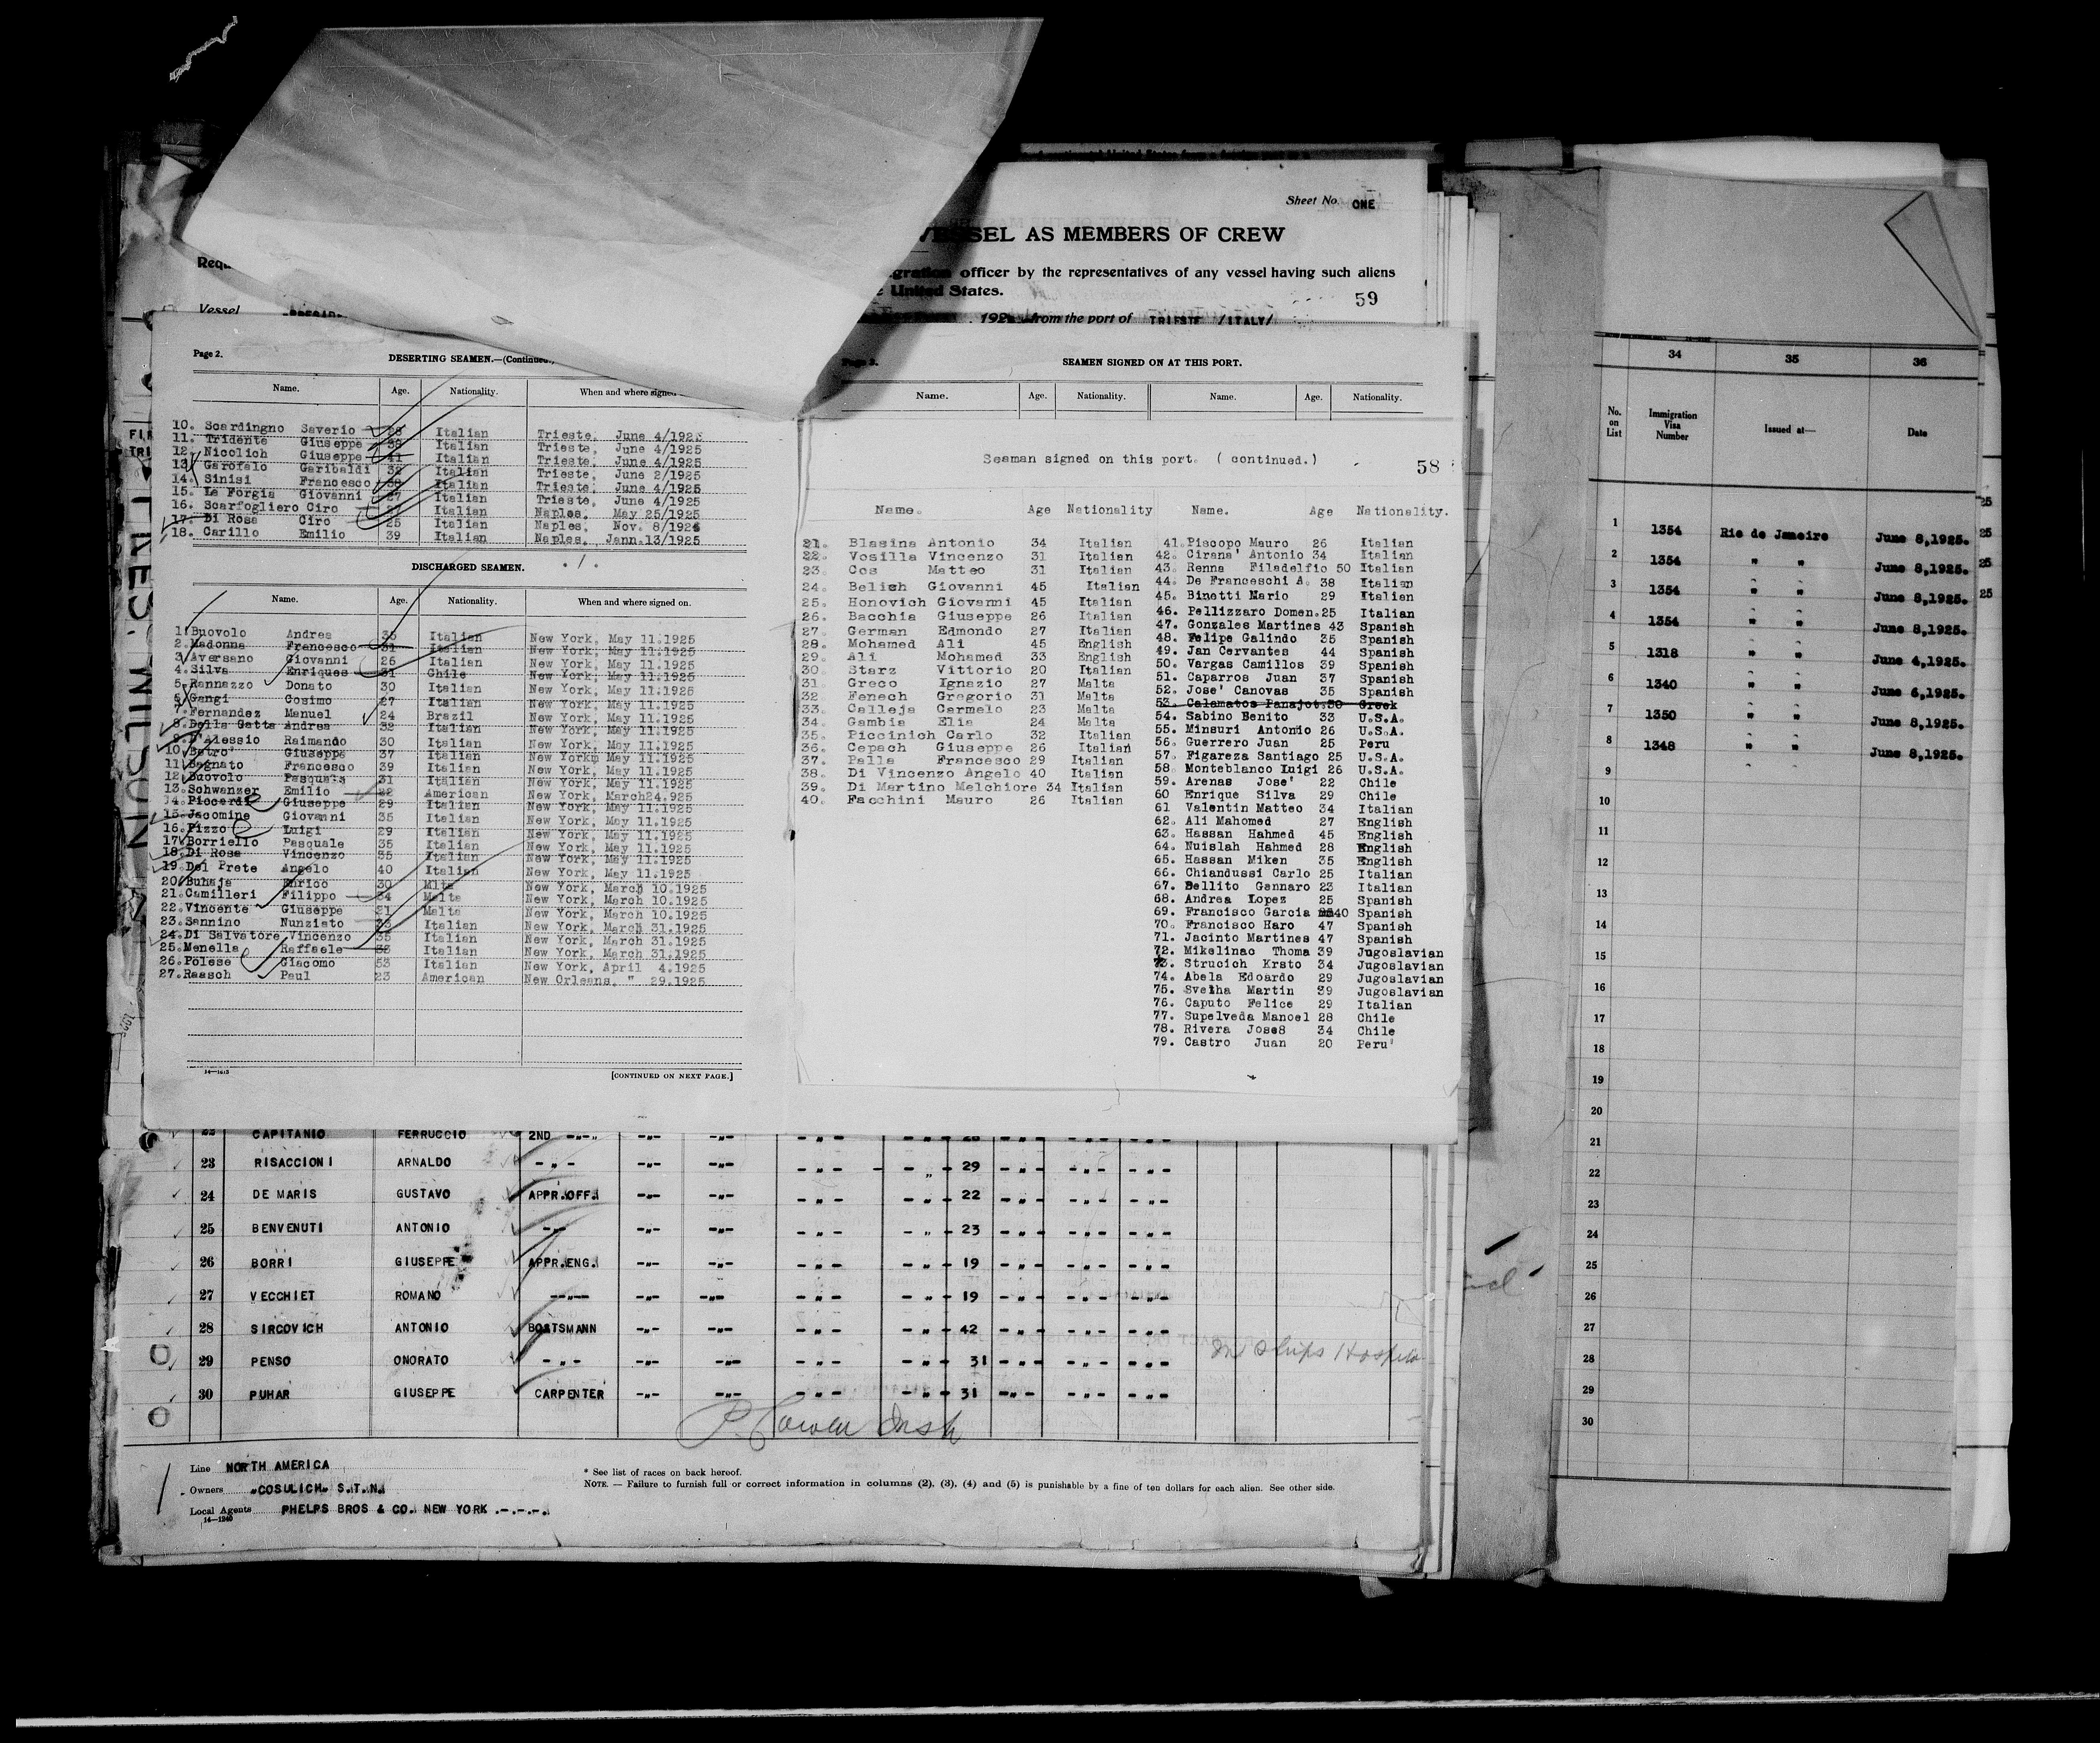 Sheet No. ONE
VESSEL AS MEMBERS OF CREW
officer by the representatives of any vessel having such aliens
United States.
59
Vessel
from the port of TRIESTE /ITALY/
Page 2.
DESERTING SEAMEN.—(Continued.)
Name. Age. Nationality. When and where signed
10. Scardingno Saverio 28 Italian Trieste. June 4/1925
11. Tridente Giuseppe 38 Italian Trieste. June 4/1925
12. Nicolich Giuseppe 41 Italian Trieste. June 4/1925
13. Garofalo Garibaldi 32 Italian Trieste. June 2/1925
14. Sinisi Francesco 38 Italian Trieste. June 4/1925
15. La Forgia Giovanni 27 Italian Trieste. June 4/1925
16. Scarfogliero Ciro Italian Naples. May 25/1925
17. Di Rosa Ciro 25 Italian Naples. Nov. 8/1924
18. Carillo Emilio 39 Italian Naples. Jann.13/1925
DISCHARGED SEAMEN.
Name. Age. Nationality. When and where signed on.
1. Buovolo Andrea 35 Italian New York, May 11.1925
2. Madonna Francesco 31 Italian New York, May 11.1925
3. Aversano Giovanni 25 Italian New York, May 11.1925
4. Silva Enriques 31 Chile New York, May 11.1925
5. Rannazzo Donato 30 Italian New York, May 11.1925
6. Gangi Cosimo 27 Italian New York, May 11.1925
7. Fernandez Manuel 24 Brazil New York, May 11.1925
8. Della Gatta Andrea 32 Italian New York, May 11.1925
9. D'Alessio Raimando 30 Italian New York, May 11.1925
10. Petro' Giuseppe 37 Italian New Yorkm May 11.1925
11. Bagnato Francesco 39 Italian New York, May 11.1925
12. Buovolo Pasquale 31 Italian New York, May 11.1925
13. Schwanzer Emilio 22 American New York, March24.925
14. Piccardi Giuseppe 29 Italian New York, May 11.1925
15. Jacomine Giovanni 35 Italian New York, May 11.1925
16. Pizzo Luigi 29 Italian New York, May 11.1925
17. Borriello Pasquale 35 Italian New York, May 11.1925
18. Di Rosa Vincenzo 35 Italian New York, May 11.1925
19. Del Prete Angelo 40 Italian New York, May 11.1925
20. Buhaja Enrico 30 Mlta New York, March 10.1925
21. Camilleri Filippo 34 Malta New York, March 10.1925
22. Vincente Giuseppe 21 Malta New York, March 10.1925
23. Sannino Nunziato 33 Italian New York, March 31.1925
24. Di Salvatore Vincenzo 35 Italian New York, March 31.1925
25. Menella Raffaele 35 Italian New York, March 31.1925
26. Polese Giacomo 53 Italian New York, April 4.1925
27. Raasch Paul 23 American New Orleans. " 29.1925
14—1613 [CONTINUED ON NEXT PAGE.]
Page 3.
SEAMEN SIGNED ON AT THIS PORT.
Name. Age. Nationality. Name. Age. Nationality.
Seaman signed on this port. ( continued.) 58
Name. Age Nationality Name. Age Nationality.
21. Blasina Antonio 34 Italian
22. Vosilla Vincenzo 31 Italian
23. Cos Matteo 31 Italian
24. Belich Giovanni 45 Italian
25. Honovich Giovanni 45 Italian
26. Bacchia Giuseppe 26 Italian
27. German Edmondo 27 Italian
28. Mohamed Ali 45 English
29. Ali Mohamed 33 English
30. Starz Vittorio 20 Italian
31. Greco Ignazio 27 Malta
32. Fenech Gregorio 31 Malta
33. Calleja Carmelo 23 Malta
34. Gambia Elia 24 Malta
35. Piccinich Carlo 32 Italian
36. Cepach Giuseppe 26 Italian
37. Palla Francesco 29 Italian
38. Di Vincenzo Angelo 40 Italian
39. Di Martino Melchiore 34 Italian
40. Facchini Mauro 26 Italian
41. Piscopo Mauro 26 Italian
42. Cirana' Antonio 34 Italian
43. Renna Filadelfio 50 Italian
44. De Franceschi A. 38 Italian
45. Binetti Mario 29 Italian
46. Pellizzaro Domen.25 Italian
47. Gonzales Martines 43 Spanish
48. Felipe Galindo 35 Spanish
49. Jan Cervantes 44 Spanish
50. Vargas Camillos 39 Spanish
51. Caparros Juan 37 Spanish
52. Jose' Canovas 35 Spanish
53. Calamatos Panajot.50 Greek
54. Sabino Benito 33 U.S.A.
55. Minsuri Antonio 26 U.S.A.
56. Guerrero Juan 25 Peru
57. Figareza Santiago 25 U.S.A.
58. Monteblanco Luigi 26 U.S.A.
59. Arenas Jose' 22 Chile
60 Enrique Silva 29 Chile
61 Valentin Matteo 34 Italian
62. Ali Mahomed 27 English
63. Hassan Hahmed 45 English
64. Nuislah Hahmed 28 English
65. Hassan Miken 35 English
66. Chiandussi Carlo 25 Italian
67. Bellito Gennaro 23 Italian
68. Andrea Lopez 25 Spanish
69. Francisco Garcia 40 Spanish
70. Francisco Haro 47 Spanish
71. Jacinto Martines 47 Spanish
72. Mikelinac Thoma 39 Jugoslavian
73. Strucich Krsto 34 Jugoslavian
74. Abela Edoardo 29 Jugoslavian
75. Svetha Martin 39 Jugoslavian
76. Caputo Felice 29 Italian
77. Supelveda Manoel 28 Chile
78. Rivera Jose8 34 Chile
79. Castro Juan 20 Peru'
CAPITANIO FERRUCCIO 2ND -"-
23 RISACCIONI ARNALDO -"- 29
24 DE MARIS GUSTAVO APPR.OFF. 22
25 BENVENUTI ANTONIO -"- 23
26 BORRI GIUSEPPE APPR.ENG. 19
27 VECCHIET ROMANO -"- 19
28 SIRCOVICH ANTONIO BOATSMANN 42
29 PENSO ONORATO -"- 31
30 PUHAR GIUSEPPE CARPENTER 31
Line NORTH AMERICA
Owners "COSULICH" S.T.N.
Local Agents PHELPS BROS & CO. NEW YORK .-.-.-.
14—1240
* See list of races on back hereof.
NOTE. — Failure to furnish full or correct information in columns (2), (3), (4) and (5) is punishable by a fine of ten dollars for each alien. See other side.
34 35 36
No. on List Immigration Visa Number Issued at— Date
1 1354 Rio de Janeiro June 8,1925.
2 1354 " " June 8,1925.
3 1354 " " June 8,1925.
4 1354 " " June 8,1925.
5 1318 " " June 4,1925.
6 1340 " " June 6,1925.
7 1350 " " June 8,1925.
8 1348 " " June 8,1925.
9
10
11
12
13
14
15
16
17
18
19
20
21
22
23
24
25
26
27
28
29
30